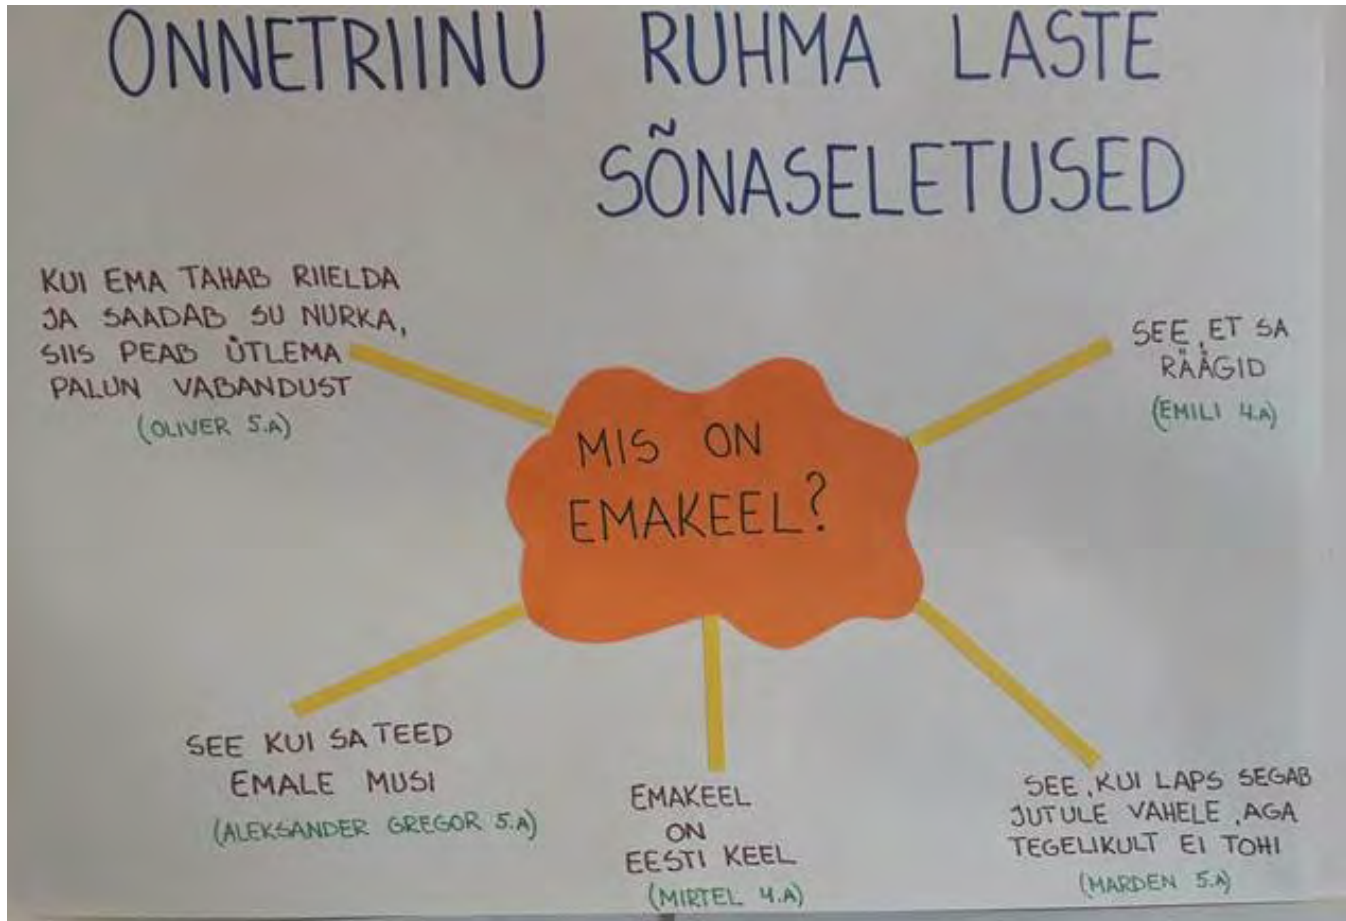 ÕNNETRIINU RUHMA LASTE
SÕNASELETUSED
KUI EMA TAHAB RIIELDA
JA SAADAB SU NURKA,
SIIS PEAB ÜTLEMA
PALUN VABANDUST
(OLIVER 5.A)
SEE, ET SA
RÄÄGID
(EMILI 4.A)
MIS ON
EMAKEEL?
SEE KUI SA TEED
EMALE MUSI
(ALEKSANDER GREGOR 5.A)
EMAKEEL
ON
EESTI KEEL
(MIRTEL 4.A)
SEE, KUI LAPS SEGAB
JUTULE VAHELE, AGA
TEGELIKULT EI TOHI
(MARDEN 5.A)